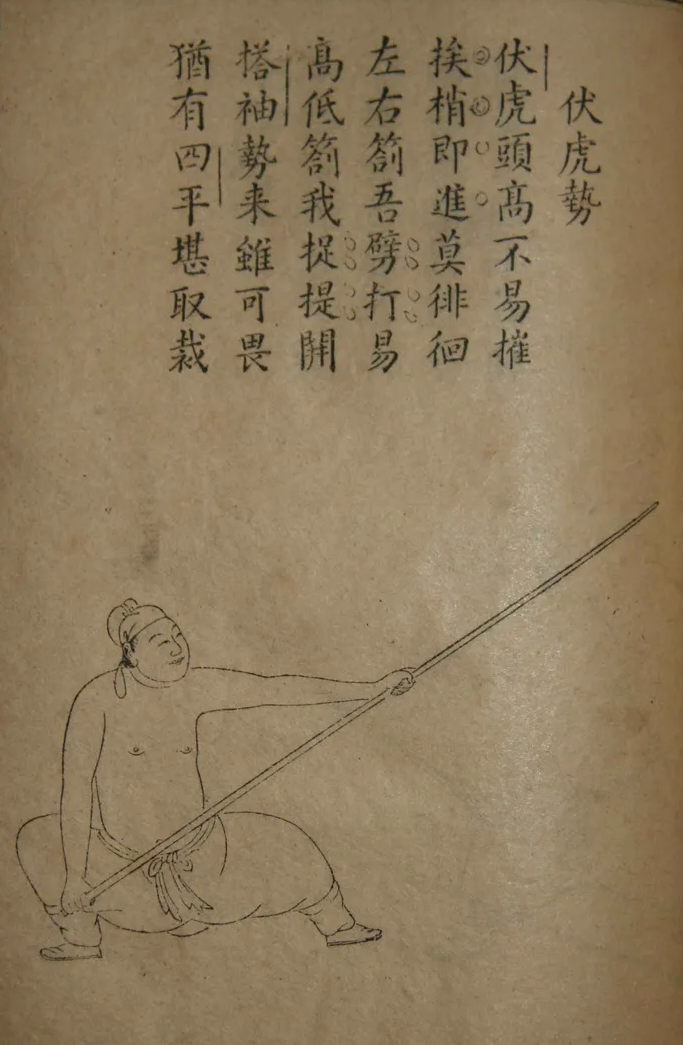 伏虎勢
伏虎頭髙不易摧
挨梢即進莫徘徊
左右劄吾劈打易
髙低劄我捉提開
搭袖勢来雖可畏
猶有四平堪取裁